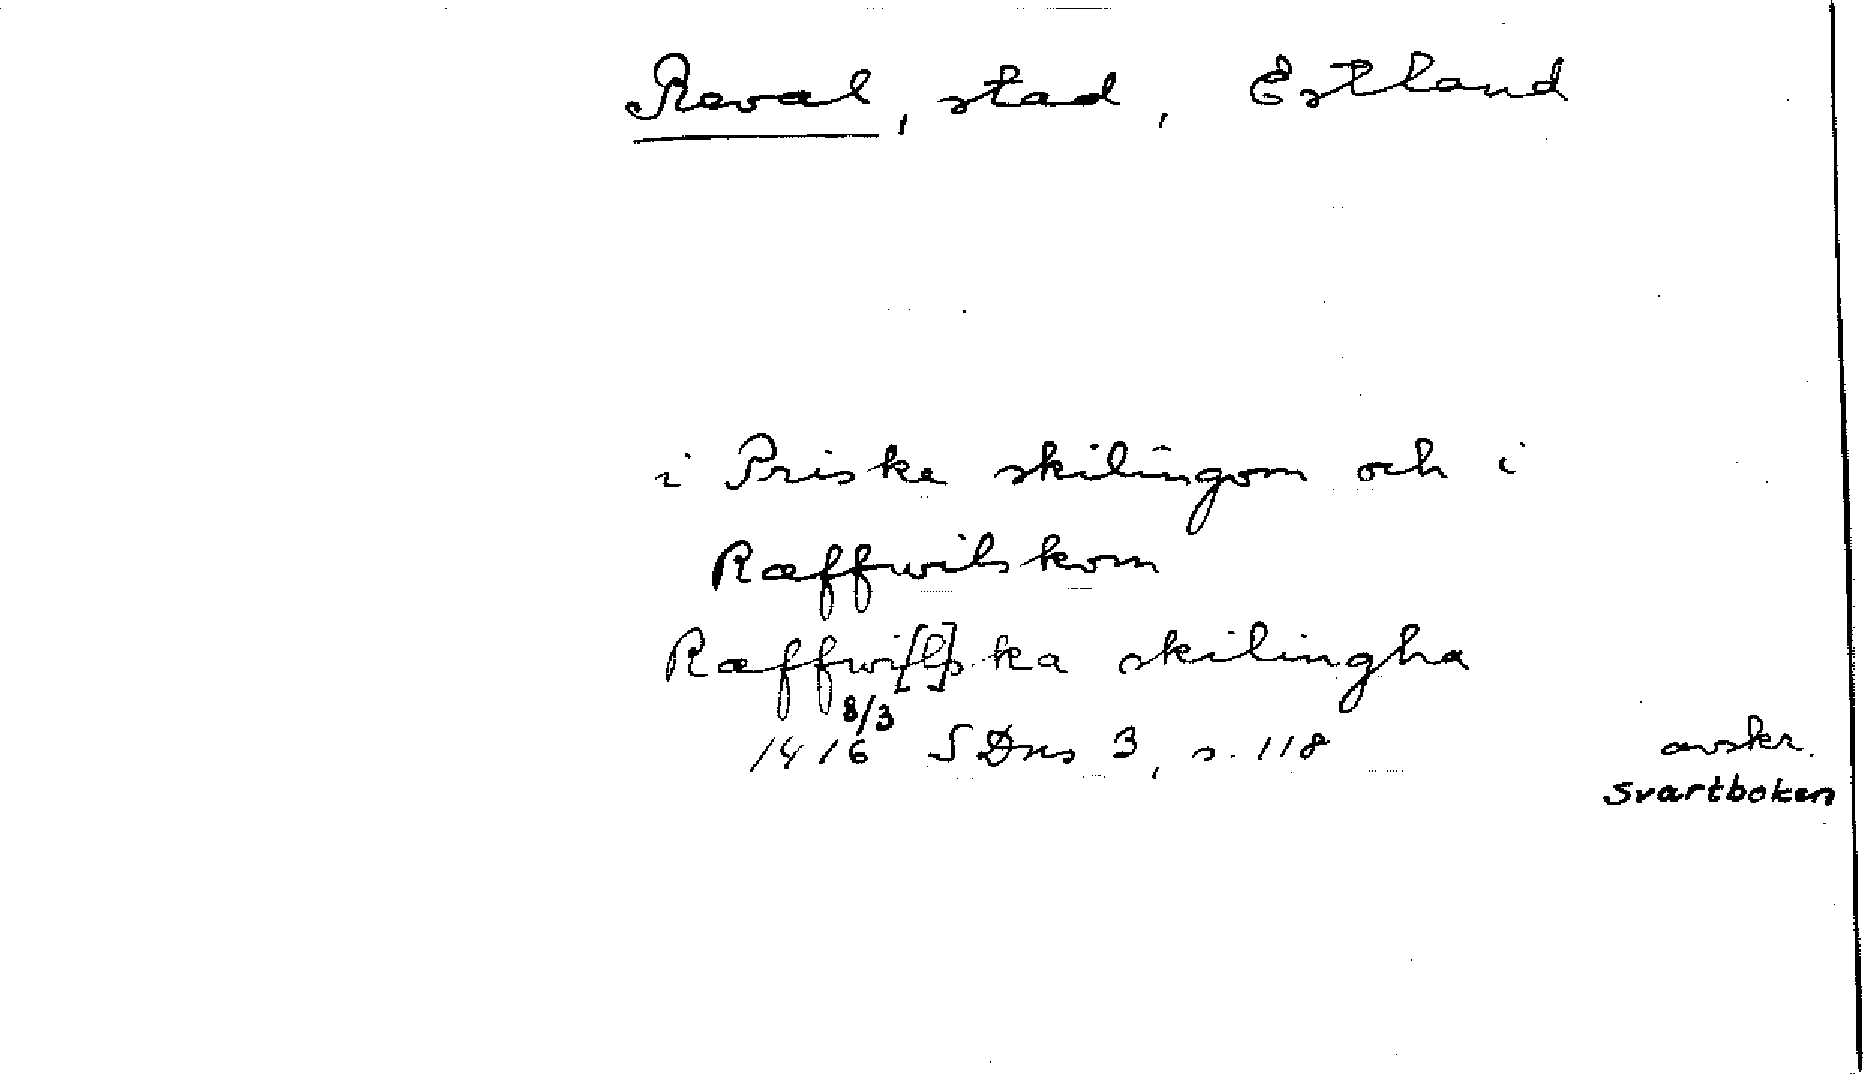 Reval, stad, Estland
i Priske skilingom och i
Ræffwilskom
Ræffwi[l]ska skilingha
8/3
1416 SDns 3, s. 118 avskr.
Svartboken